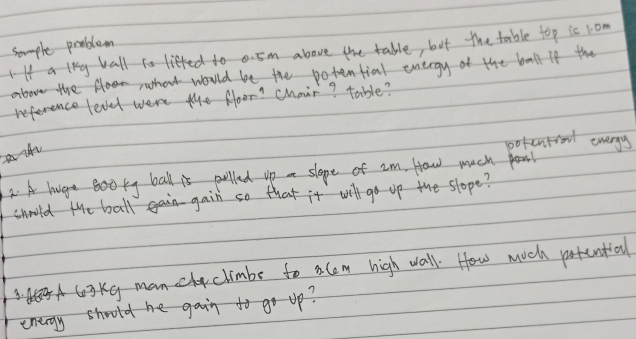 Sample problem
1. If a 1kg ball is lifted to 0.5m above the table, but the table top is 1.0m
above the floor, what would be the potential energy of the ball if the
reference level were the floor? Chair? table?
potential energy
2. A huge 800 kg ball is pulled up a slope of 2m. How much
should the ball gain so that it will go up the slope?
3. A 63 Kg man climbs to 3.6m high wall. How much potential
energy should he gain to go up?